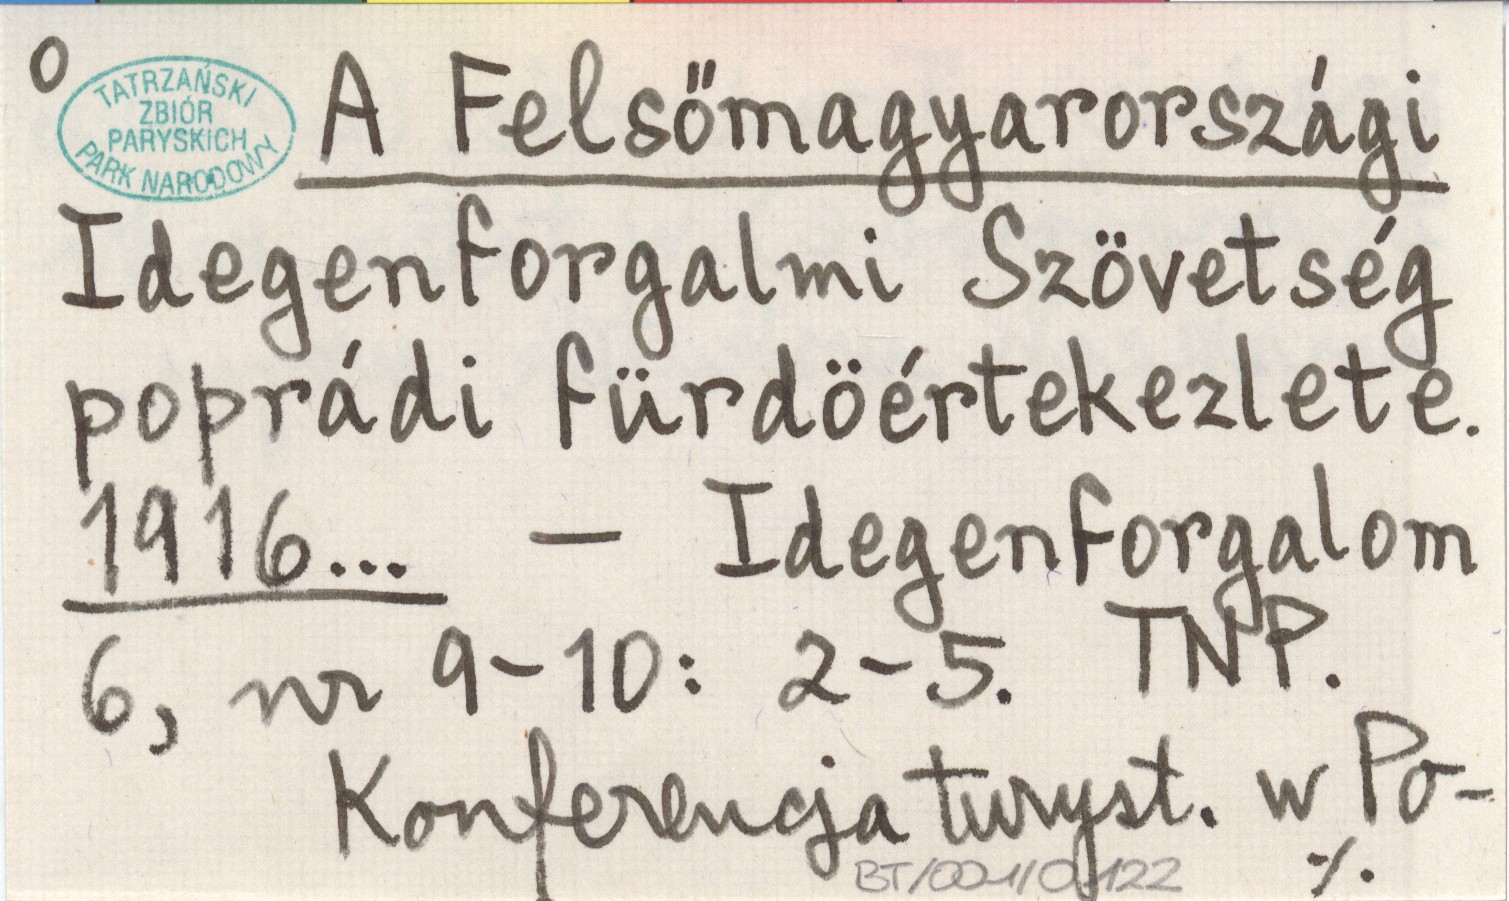 O
TATRZAŃSKI
ZBIÓR
PARYSKICH
PARK NARODOWY
A Felsőmagyarországi
Idegenforgalmi Szövetség
poprádi fürdöértekezlete.
1916... — Idegenforgalom
6, nr 9-10: 2-5. TNP.
Konferencja turyst. w Po-
BT/001/0.122
./.